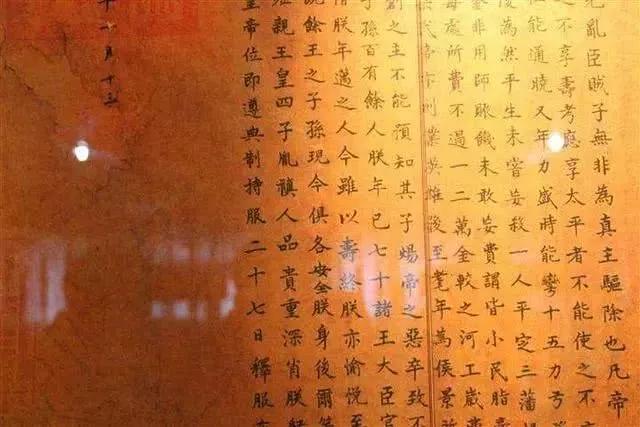 亂臣賊子無非為真主驅除也凡帝
之不享壽考應享太平者不能使之不
能通曉又年力盛時能彎十五力弓
為然平生未嘗妄殺一人平定三藩
非用師賑饑未敢妄費謂皆小民脂
每處所費不過一二萬金較之河工歲費
業英雄後至耄年為侯景
創之主不能預知其子煬帝之惡卒致不
子孫百有餘人朕年已七十諸王大臣官
朕年邁之人今雖以壽終朕亦愉悅至
餘王之子孫現今俱各安全朕身後爾等
親王皇四子胤禛人品貴重深肖朕
皇帝位即遵典制持服二十七日釋服
十一月十三